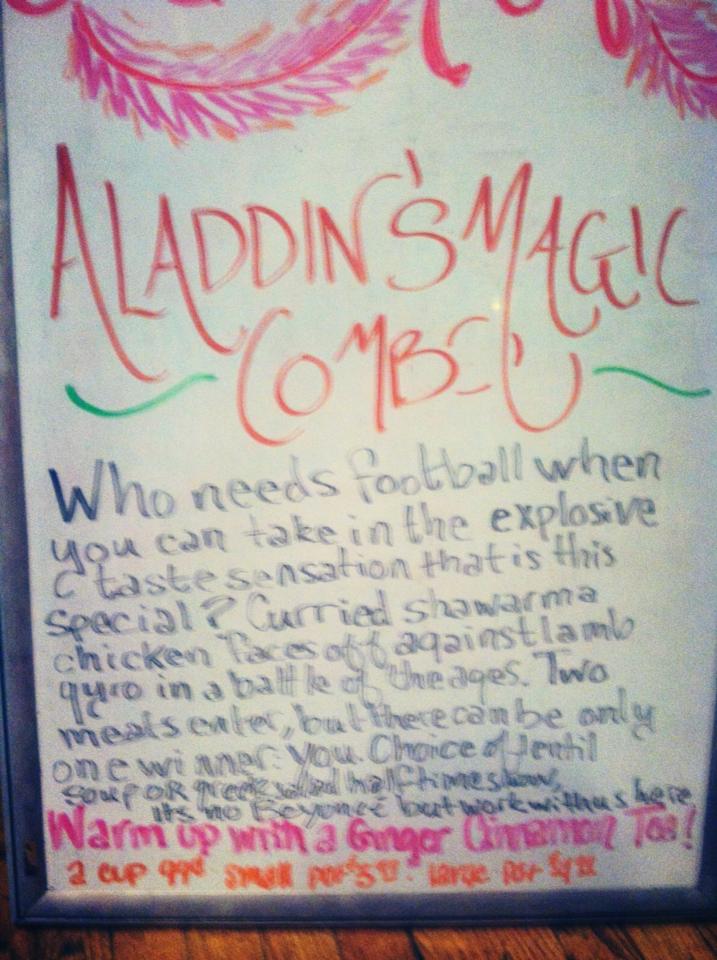 ALADDIN'S MAGIC
COMBO
Who needs football when
you can take in the explosive
taste sensation that is this
special? Curried shawarma
chicken faces off against lamb
gyro in a battle of the ages. Two
meats enter, but there can be only
one winner: you. Choice of lentil
soup OR greek salad halftime show,
its no Beyoncé but work with us here
Warm up with a Ginger Cinnamon Tea!
a cup 99¢ small pot large pot